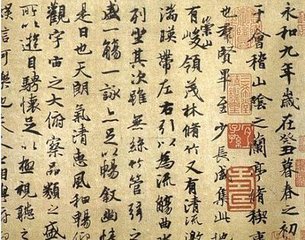 永和九年歲在癸丑暮春之初
于會稽山陰之蘭亭脩稧
也羣賢畢至少長咸集此地
有崇山峻領茂林脩竹又有清流激
湍暎帶左右引以為流觴曲水
列坐其次雖無絲竹管弦之
盛一觴一詠亦足以暢叙幽情
是日也天朗氣清惠風和暢仰
觀宇宙之大俯察品類之盛
所以遊目騁懷足以極視聽之
娛信可樂也夫